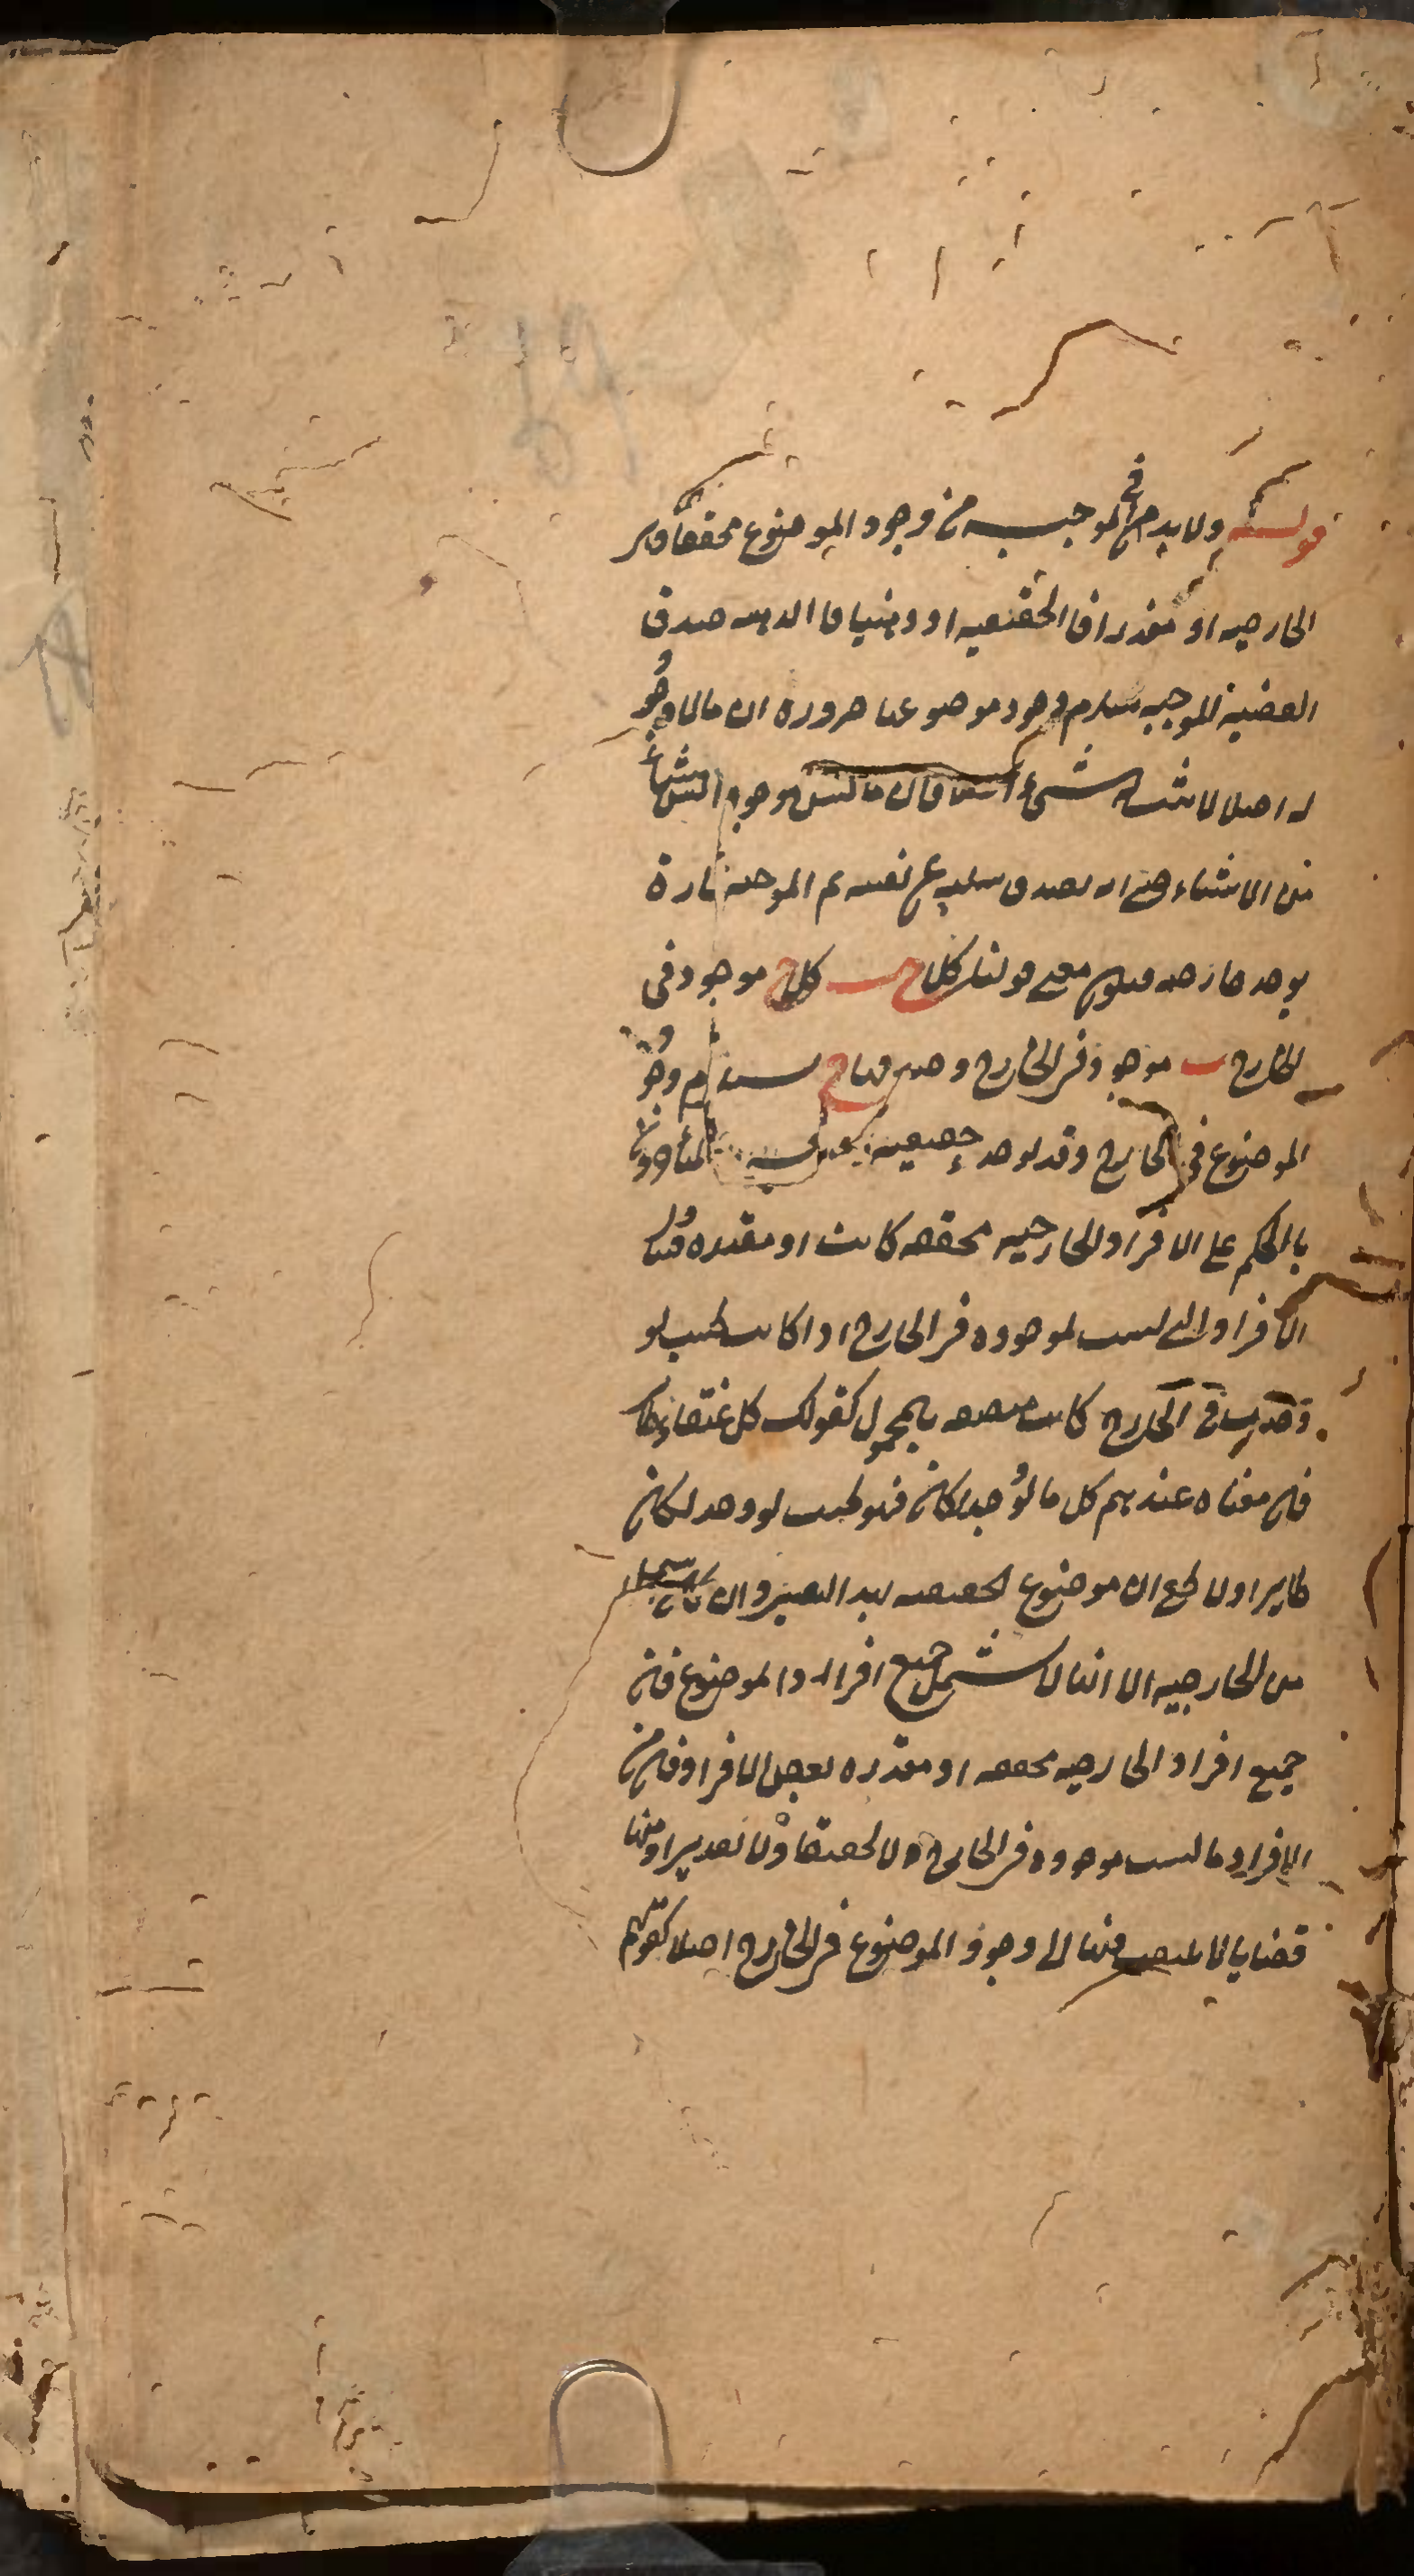 قوله ولا بد في الموجبة من وجود الموضوع محققا وهي
الخارجية او مقدرا فالحقيقية او ذهنيا فالذهنية صدق
القضية الموجبة يستلزم وجود موضوعها ضرورة ان ما لا وجود
له اصلا لا يثبت له شيء اصلا فان ما ليس موجودا ليس شيئا
من الاشياء حتى انه يصدق سلبه عن نفسه ثم الموجبة تارة
يوجد خارجية فيكون معنى قولنا كل ج ب كل ج موجود في
الخارج ب موجود في الخارج وصدقها يستلزم وجود
الموضوع في الخارج وقد يوجد حقيقية
بالحكم على الافراد الخارجية محققة كانت او مقدرة
الافراد التي ليست بموجودة في الخارج اذا كانت بحيث لو
وجدت في الخارج كانت متصفة بالمحمول كقولك كل عنقاء طائر
فان معناه عندهم كل ما لو وجد لكان فهو بحيث لو وجد لكان
طايرا ولا يخفى ان موضوع الحقيقية بهذا التفسير وان كان اشمل
من الخارجية الا انها لا تشمل جميع افراد الموضوع فان
جميع افراد الخارجية محققة او مقدرة بعض الافراد فان من
الافراد ما ليست موجودة في الخارج لا تحقيقا ولا تقديرا
قضايا لا يلتفت فيها الى وجود الموضوع في الخارج اصلا كقولهم